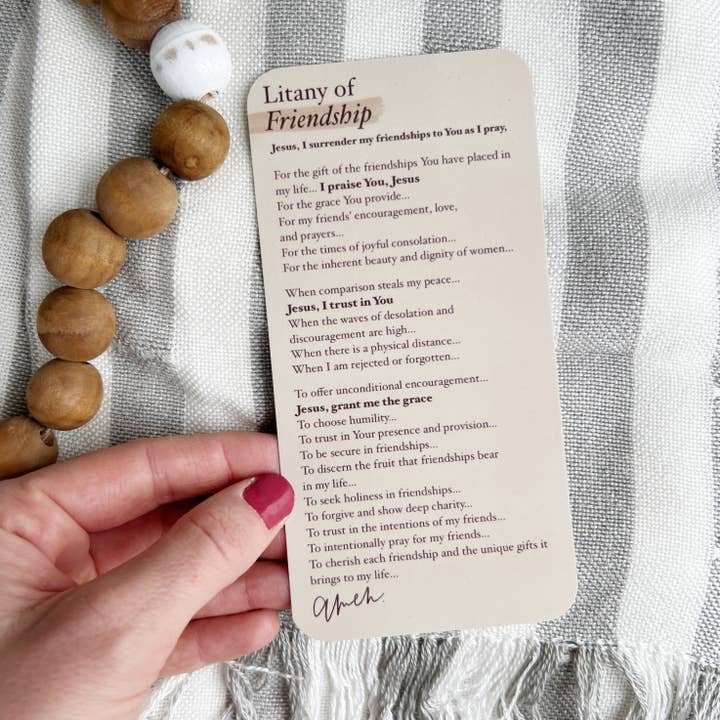 Litany of
Friendship
Jesus, I surrender my friendships to You as I pray,
For the gift of the friendships You have placed in
my life... I praise You, Jesus
For the grace You provide...
For my friends' encouragement, love,
and prayers...
For the times of joyful consolation...
For the inherent beauty and dignity of women...
When comparison steals my peace...
Jesus, I trust in You
When the waves of desolation and
discouragement are high...
When there is a physical distance...
When I am rejected or forgotten...
To offer unconditional encouragement...
Jesus, grant me the grace
To choose humility...
To trust in Your presence and provision...
To be secure in friendships...
To discern the fruit that friendships bear
in my life...
To seek holiness in friendships...
To forgive and show deep charity...
To trust in the intentions of my friends...
To intentionally pray for my friends...
To cherish each friendship and the unique gifts it
brings to my life...
amen.